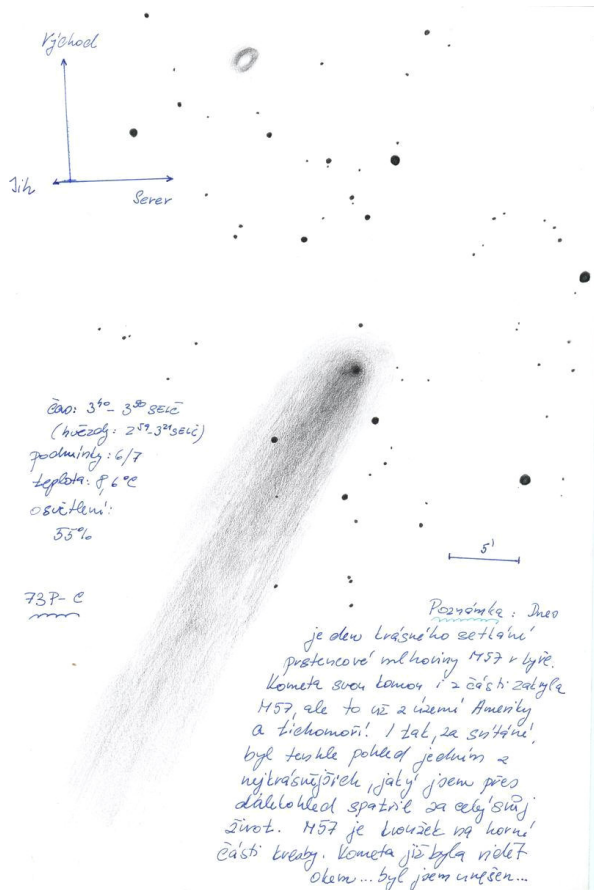 Východ
Jih
Sever
čas: 3⁴⁰ - 3⁵⁰ SELČ
(hvězdy: 2⁵⁹-3²¹SELČ)
podmínky: 6/7
teplota: 8,6°C
osvětlení:
55%
73P-C
5'
Poznámka: Dnes
je den krásného setkání
prstencové mlhoviny M57 v Lyře.
Kometa svou komou i z části zakryla
M57, ale to už z území Ameriky
a tichomoří! I tak, za svítání,
byl tenhle pohled jedním z
nejkrásnějších, jaký jsem přes
dalekohled spatřil za celý svůj
život. M57 je kroužek na horní
části kresby. Kometa již byla vidět
okem... byl jsem unešen...